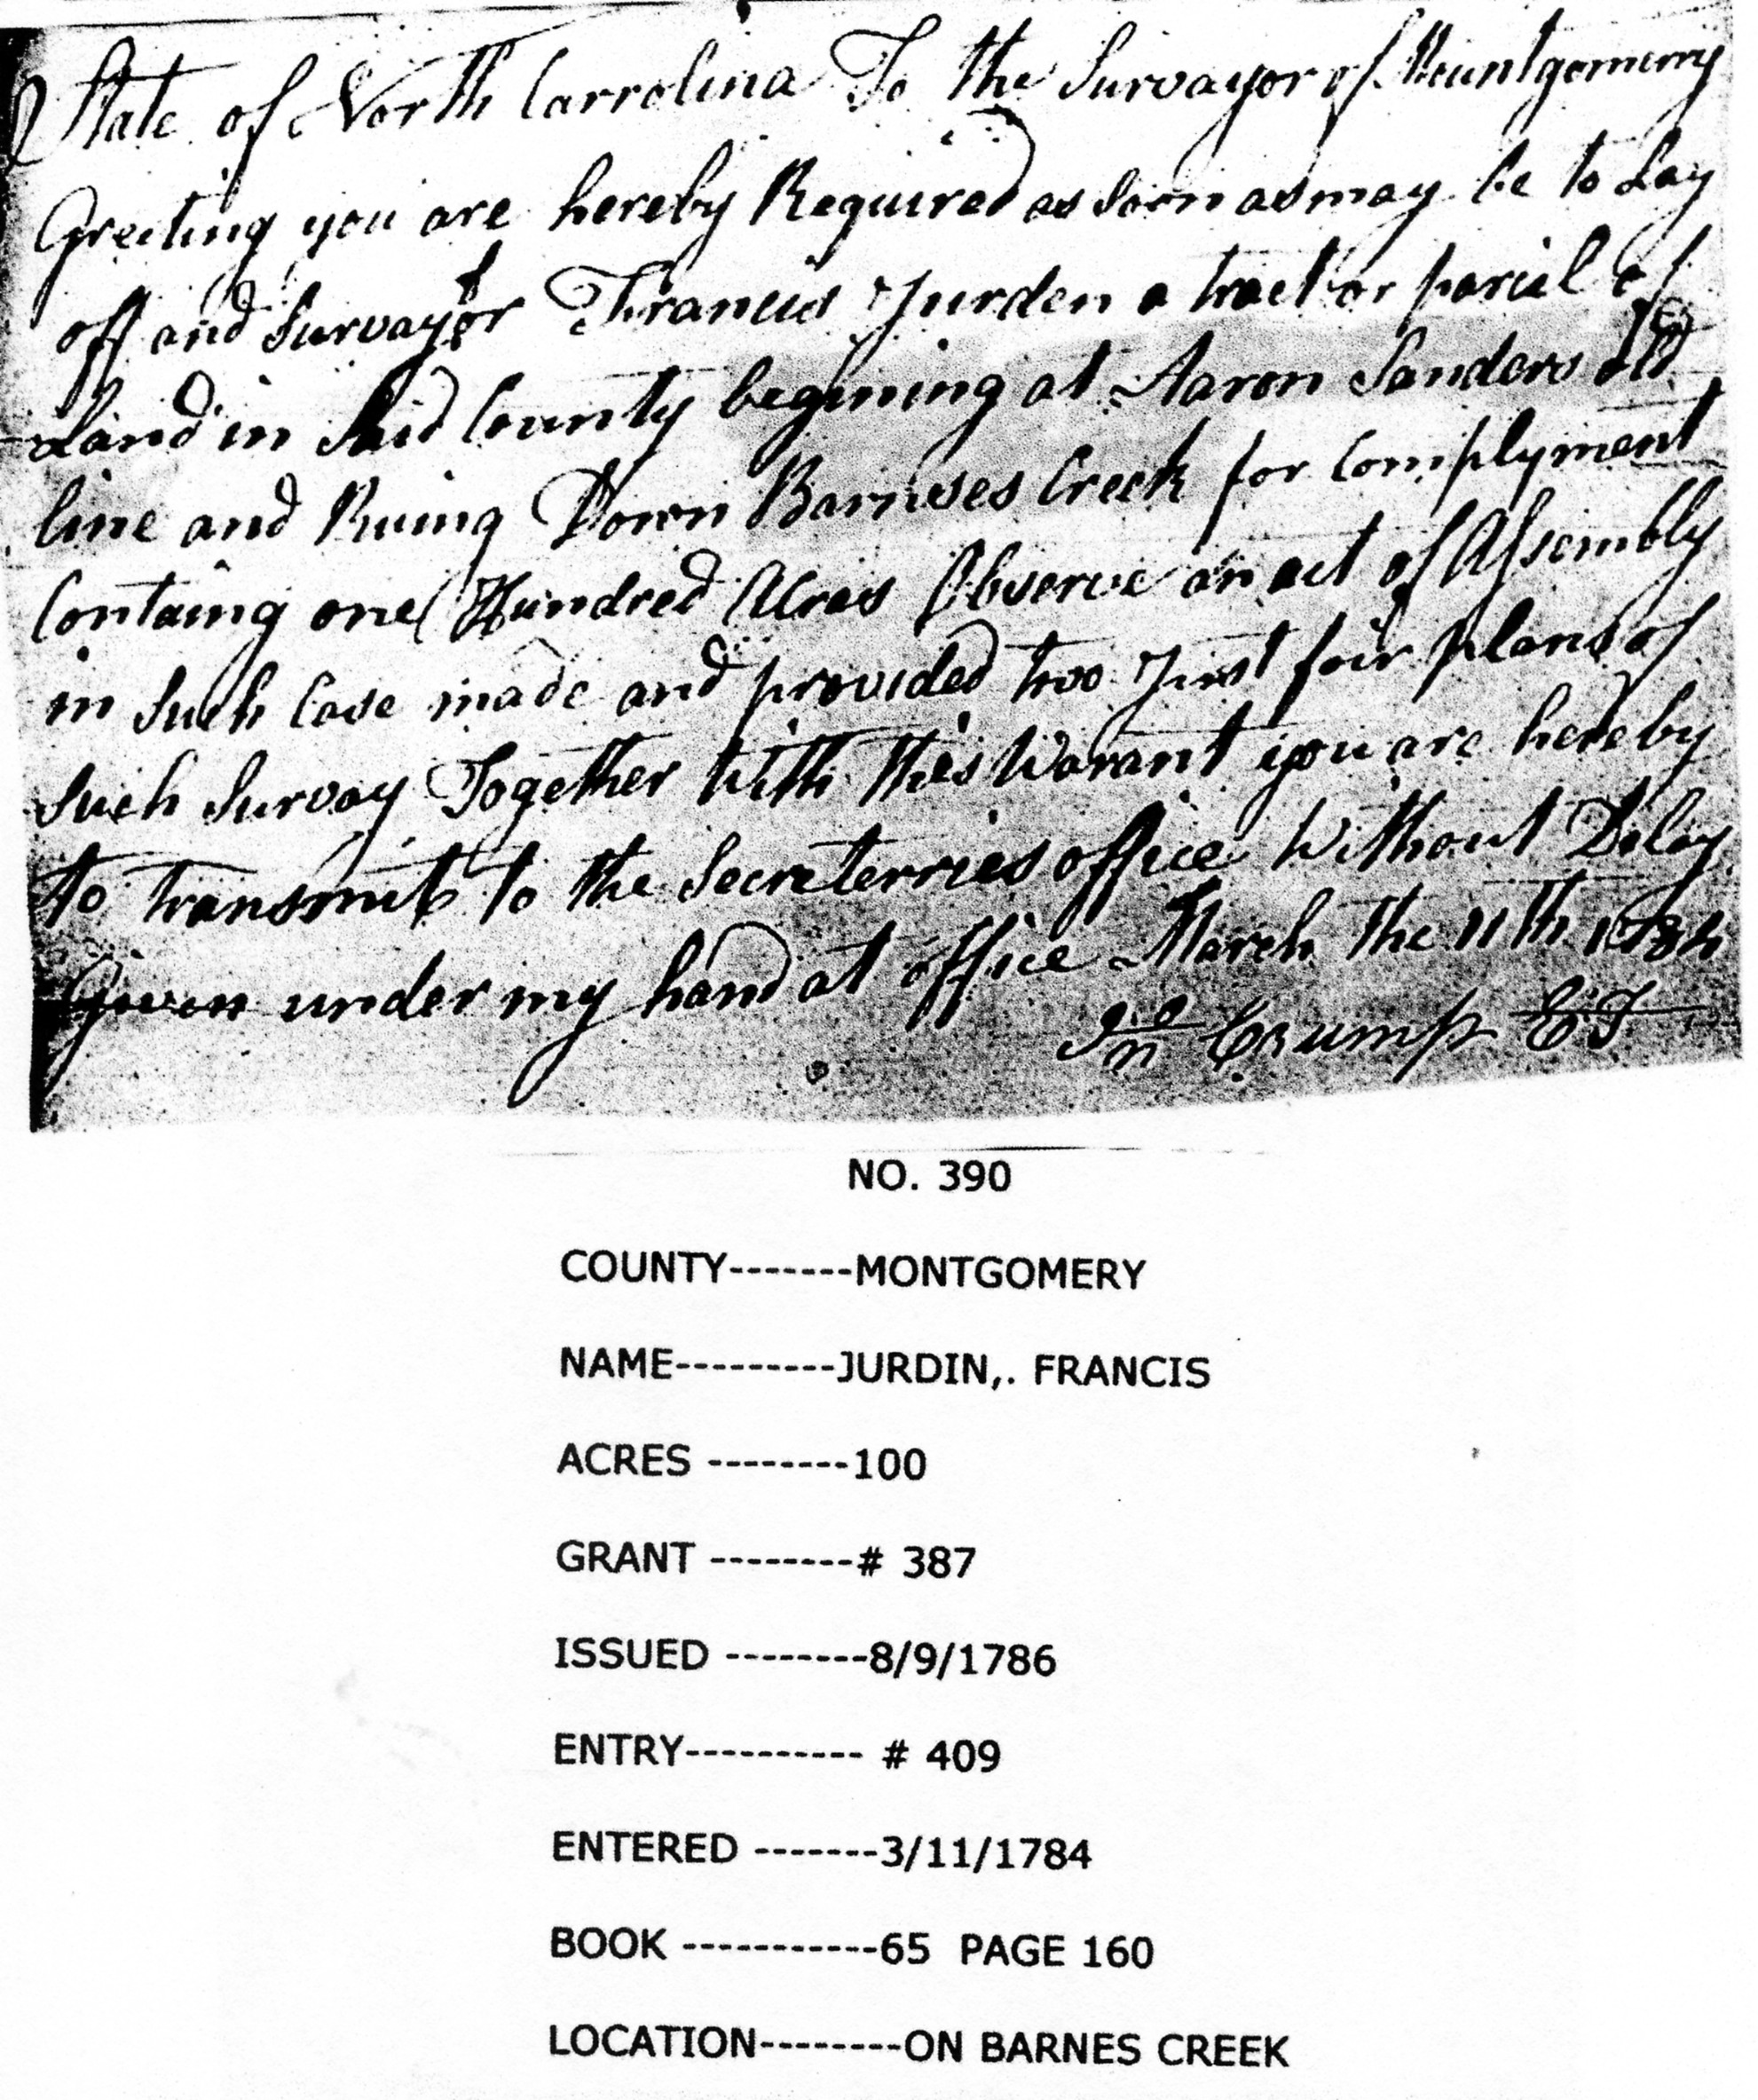 State of North Carrolina To the Survayor of Mountgomerry
Greeting you are hereby Required as Soon as may be to Lay
off and Survay for Francis Jurden a tract or parcel of
Land in Said County begining at Aaron Sanders old
line and Runing Down Barnses Creek for Complyment
Containg one Hundred Acres Observe an act of Assembly
in Such Case made and provided two Just fair plans of
Such Survay Together With this Warant you are hereby
to transmit to the Secreterries office Without Delay
Given under my hand at office March the 11th 1784
Jno Crump ET
NO. 390
COUNTY-------MONTGOMERY
NAME---------JURDIN,. FRANCIS
ACRES --------100
GRANT --------# 387
ISSUED --------8/9/1786
ENTRY---------- # 409
ENTERED -------3/11/1784
BOOK -----------65 PAGE 160
LOCATION--------ON BARNES CREEK